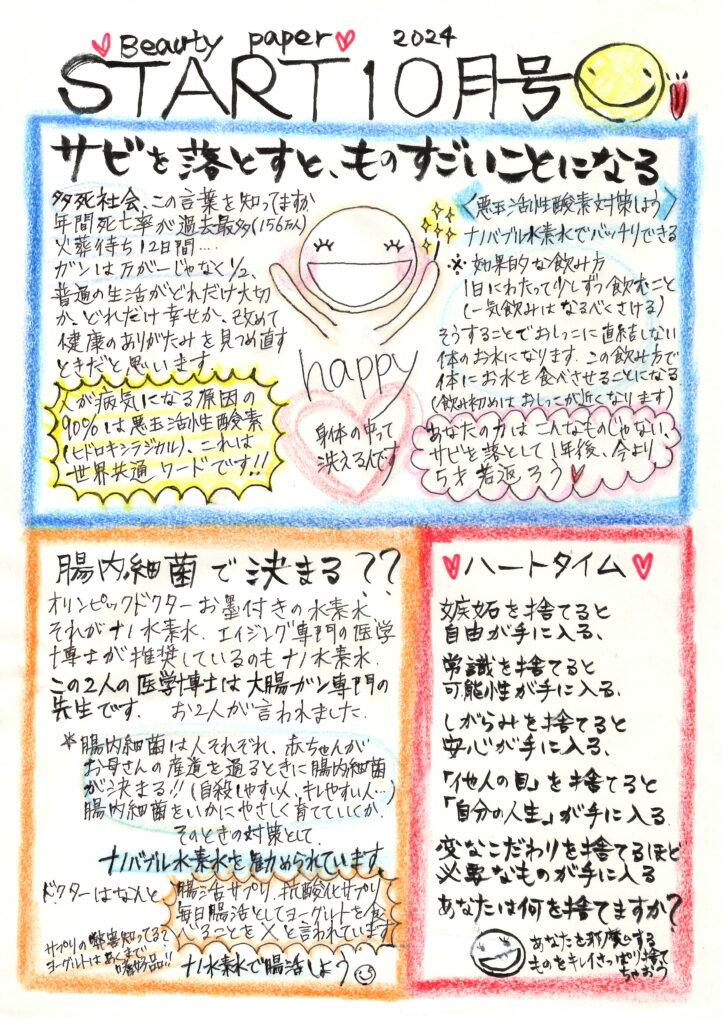 Beauty paper 2024
START10月号
サビを落とすと、ものすごいことになる
多死社会、この言葉を知ってますか
年間死亡率が過去最多(156万人)
火葬待ち12日間‥‥
ガンは万が一じゃなく1/2、
普通の生活がどれだけ大切
か、どれだけ幸せか、改めて
健康のありがたみを見つめ直す
ときだと思います
人が病気になる原因の
90%は悪玉活性酸素
(ヒドロキシラジカル)、これは
世界共通ワードです!!
happy
身体の中って
洗えるんです
〈悪玉活性酸素対策しよう〉
ナノバブル水素水でバッチリできる
※効果的な飲み方
1日にわたって少しずつ飲むこと
(一気飲みはなるべくさける)
そうすることでおしっこに直結しない
体のお水になります。この飲み方で
体にお水を食べさせることになる
(飲み初めはおしっこが近くなります)
あなたの力はこんなものじゃない、
サビを落として1年後、今より
5才若返ろう
腸内細菌で決まる??
オリンピックドクターお墨付きの水素水
それがナノ水素水、エイジング専門の医学
博士が推奨しているのもナノ水素水、
この2人の医学博士は大腸ガン専門の
先生です。 お2人が言われました、
*腸内細菌は人それぞれ、赤ちゃんが
お母さんの産道を通るときに腸内細菌
が決まる!!(自殺しやすい人、キレやすい人…)
腸内細菌をいかにやさしく育てていくか、
そのときの対策として
ナノバブル水素水を勧められています
ドクターはなんと
腸活サプリ、抗酸化サプリ
毎日腸活としてヨーグルトを食
べることを×と言われています
サプリの弊害知ってる?
ヨーグルトはあくまで
嗜好品!!
ナノ水素水で腸活しよう
ハートタイム
嫉妬を捨てると
自由が手に入る、
常識を捨てると
可能性が手に入る、
しがらみを捨てると
安心が手に入る、
「他人の目」を捨てると
「自分の人生」が手に入る
変なこだわりを捨てるほど
必要なものが手に入る
あなたは何を捨てますか?
あなたを邪魔する
ものをキレイさっぱり捨て
ちゃおう